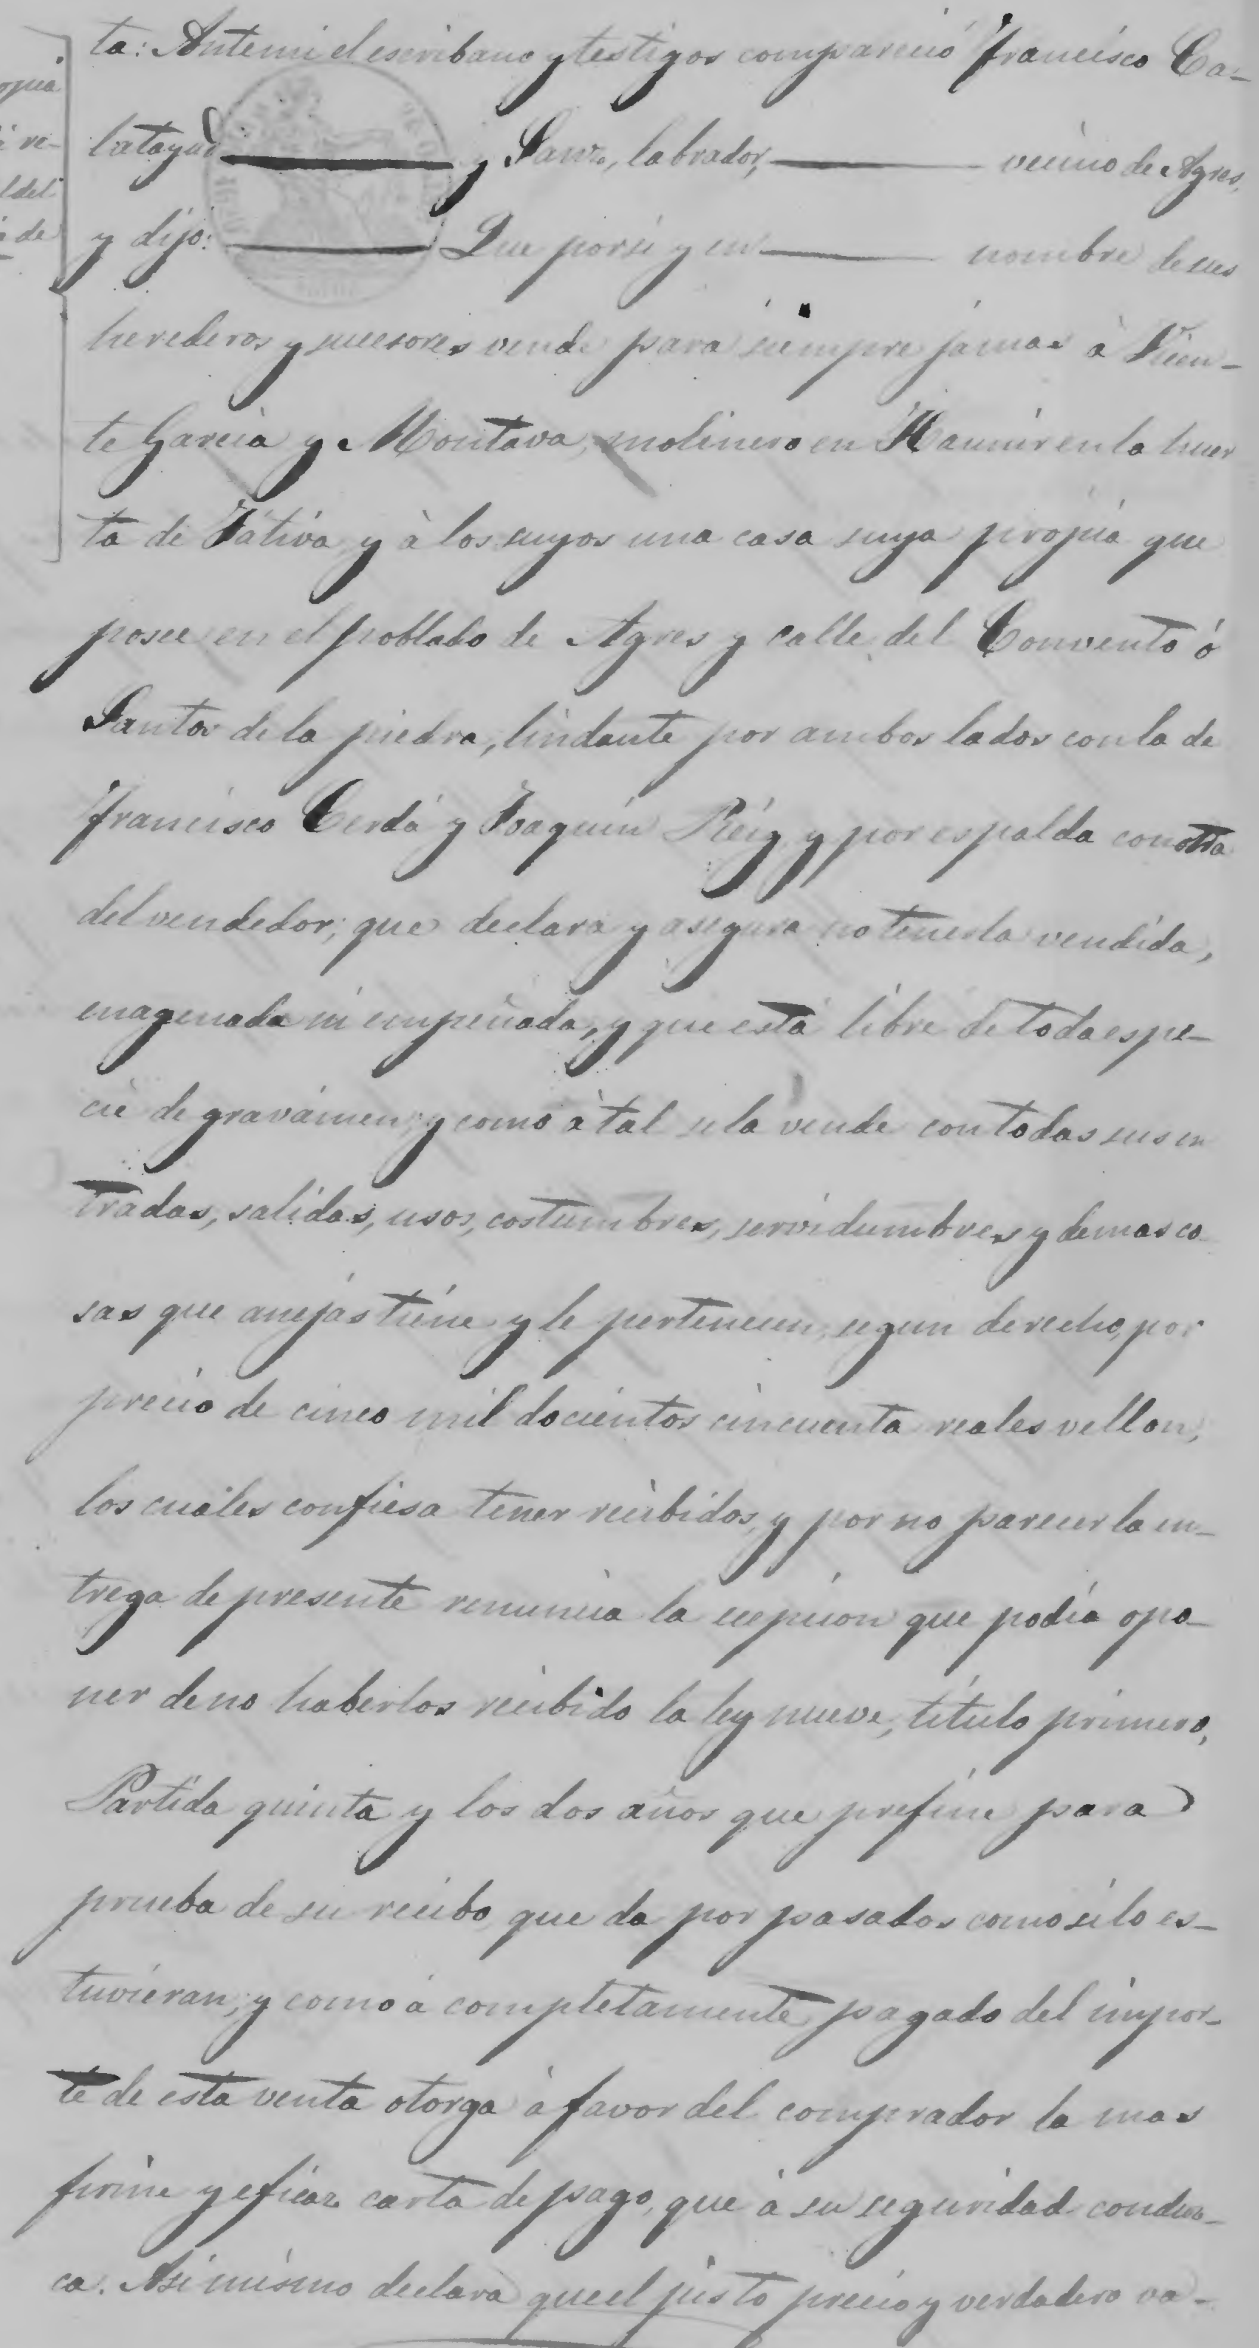 ta: Antemi el escribano y testigos compareció Francisco Ca-
latayud y Sanz, labrador, vecino de Agres,
y dijo: Que por sí y en nombre de sus
herederos y sucesores vende para siempre jamas à Vicen-
te Garcia y Montava, molinero en Ramir en la huer
ta de Játiva y à los suyos una casa suya propia que
posee en el poblado de Agres y calle del Convento ó
Santos de la piedra, lindante por ambos lados con la de
Francisco Cerdá y Joaquin Reig, y por espalda con otra
del vendedor; que declara y asegura no tenerla vendida,
enagenada ni empeñada, y que está libre de toda espe-
cie de gravámen; y como à tal se la vende con todas sus en
tradas, salidas, usos, costumbres, servidumbres y demas co
sas que anejas tiene y le pertenecen, segun derecho, por
precio de cinco mil docientos cincuenta reales vellon,
los cuales confiesa tener recibidos, y por no parecer la en-
trega de presente renuncia la escepcion que podia opo-
ner de no haberlos recibido la ley nueve, título primero,
Partida quinta y los dos años que prefine para
prueba de su recibo, que da por pasados como si lo es-
tuvieran; y como á completamente pagado del impor-
te de esta venta otorga à favor del comprador la mas
firme y eficaz carta de pago, que à su seguridad conduz-
ca. Asi mismo declara que el justo precio y verdadero va-
opia
i re-
l del
de